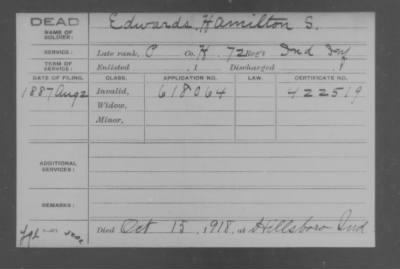 DEAD
NAME OF SOLDIER:
Edwards, Hamilton S.
SERVICE:
Late rank, C Co. H, 72 Reg't Ind Inf
TERM OF SERVICE:
Enlisted , 1 Discharged , 1
DATE OF FILING. CLASS. APPLICATION NO. LAW. CERTIFICATE NO.
1887 Aug 2 Invalid, 618064 422519
Widow,
Minor,
ADDITIONAL SERVICES:
REMARKS:
Died Oct 15, 1918, at Hillsboro Ind